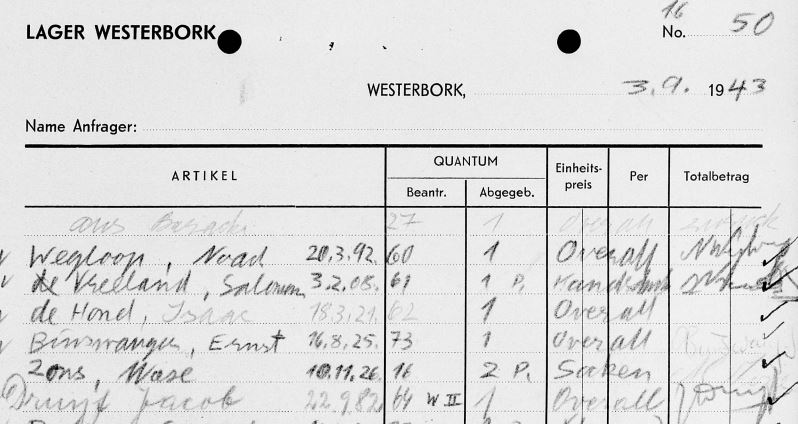 16
LAGER WESTERBORK No. 50
WESTERBORK, 3.9. 1943
Name Anfrager:
ARTIKEL QUANTUM Einheits-preis Per Totalbetrag
Beantr. Abgegeb.
aus 27 1 Overall zurück
Wegloop, Noad 20.3.92. 60 1 Overall
de Vreeland, Salomon 3.2.08. 61 1 P.
de Hond, Isaac 18.3.21. 62 1 Overall
Binswanger, Ernst 16.8.25. 73 1 Overall
Zons, Mose 10.11.26. 16 2 P. Socken
Druijf Jacob 22.9.82. 64 W II 1 Overall